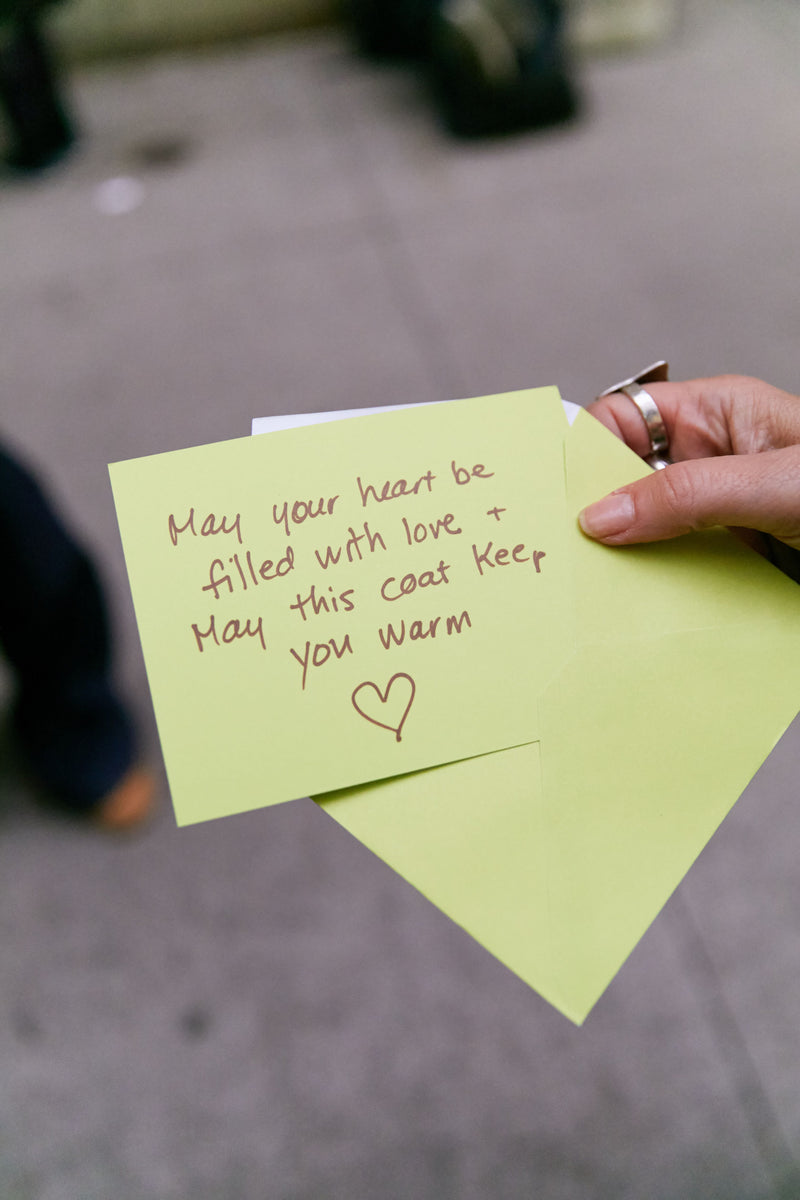 May your heart be
filled with love +
May this coat keep
you warm